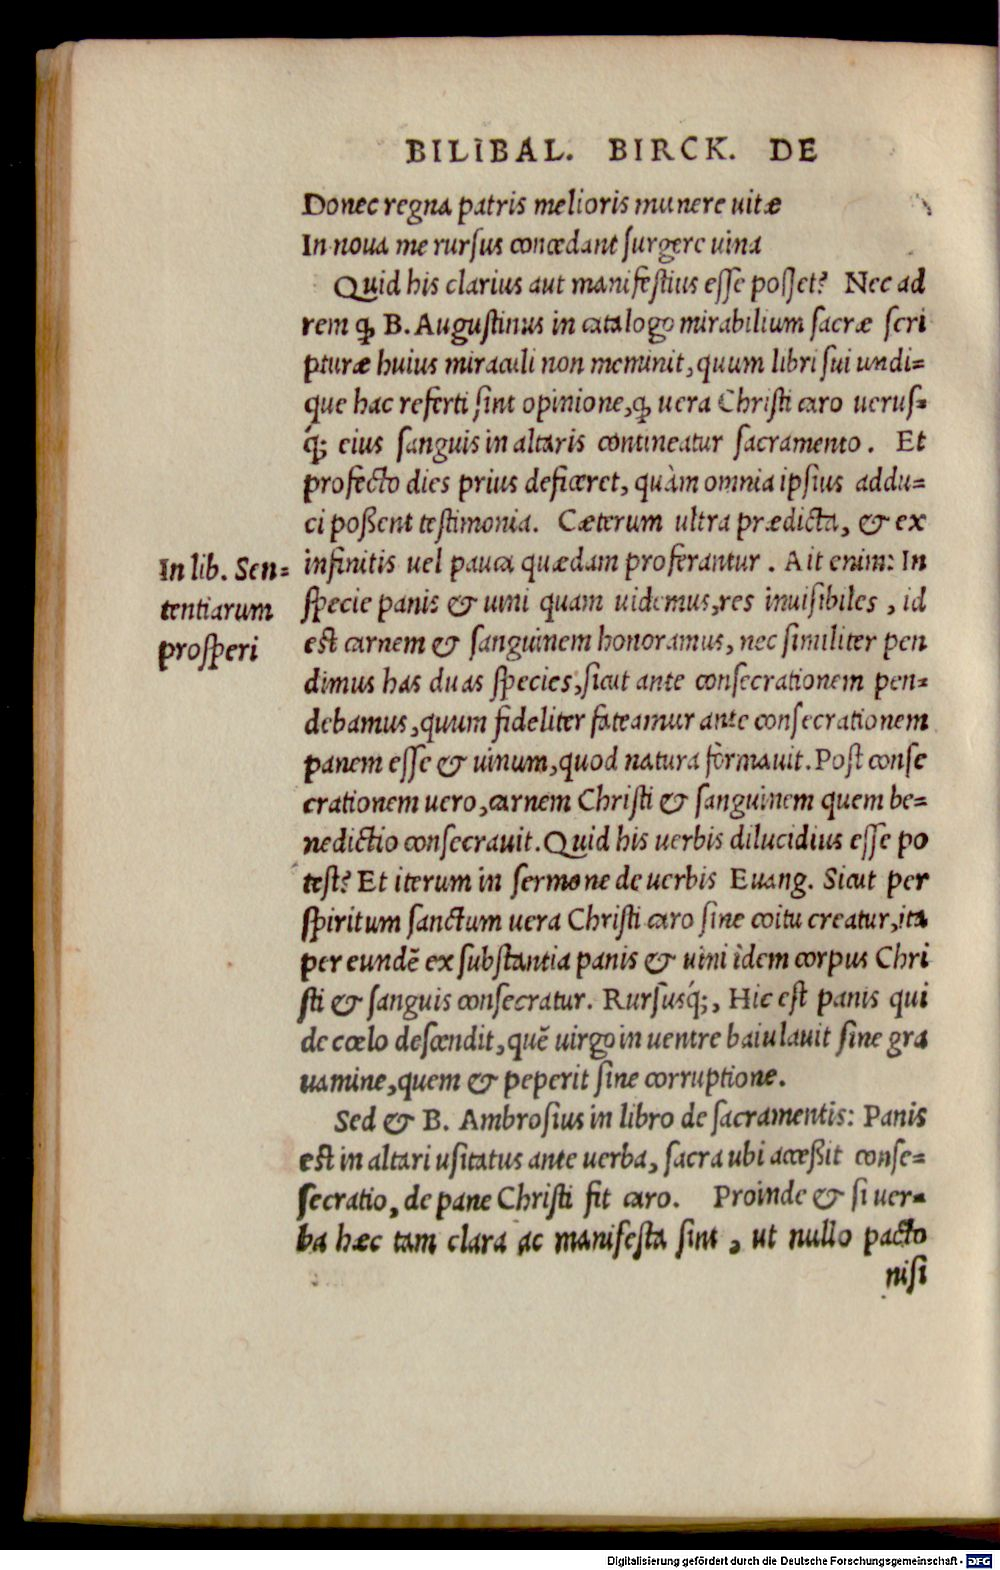 BILIBAL. BIRCK. DE
Donec regna patris melioris munere uitæ
In noua me rursus concedant surgere uina
Quid his clarius aut manifestius esse posset? Nec ad
rem ꝙ B. Augustinus in catalogo mirabilium sacræ scri
pturæ huius miraculi non meminit, quum libri sui undi=
que hac referti sint opinione, ꝙ uera Christi caro uerus=
q́; eius sanguis in altaris contineatur sacramento. Et
profecto dies prius deficeret, quàm omnia ipsius addu=
ci poßent testimonia. Cæterum ultra prædicta, & ex
infinitis uel pauca quædam proferantur. Ait enim: In
specie panis & uini quam uidemus, res inuisibiles, id
est carnem & sanguinem honoramus, nec similiter pen
dimus has duas species, sicut ante consecrationem pen=
debamus, quum fideliter fateamur ante consecrationem
panem esse & uinum, quod natura formauit. Post conse
crationem uero, carnem Christi & sanguinem quem be=
nedictio consecrauit. Quid his uerbis dilucidius esse po
test? Et iterum in sermone de uerbis Euang. Sicut per
spiritum sanctum uera Christi caro sine coitu creatur, ita
per eundē ex substantia panis & uini idem corpus Chri
sti & sanguis consecratur. Rursusq́;, Hic est panis qui
de cœlo descendit, quē uirgo in uentre baiulauit sine gra
uamine, quem & peperit sine corruptione.
Sed & B. Ambrosius in libro de sacramentis: Panis
est in altari usitatus ante uerba, sacra ubi acceßit conse=
secratio, de pane Christi fit caro. Proinde & si uer=
ba hæc tam clara ac manifesta sint, ut nullo pacto
nisi
In lib. Sen=
tentiarum
prosperi
Digitalisierung gefördert durch die Deutsche Forschungsgemeinschaft - DFG